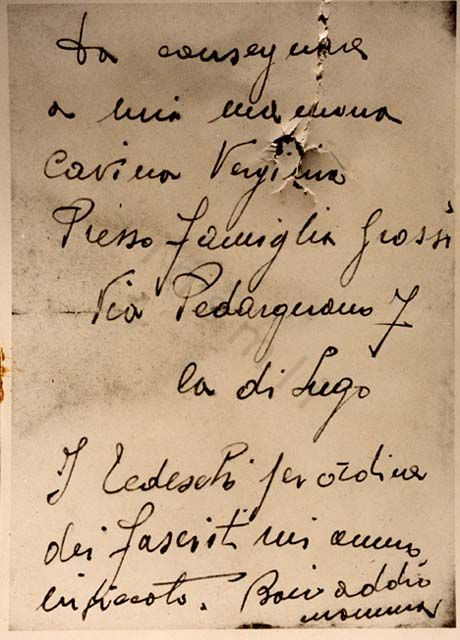 da consegnare
a mia mamma
Cavina Verginia
Presso famiglia Grossi
Via Pedergnano 7
la di Lugo
I tedeschi per ordine
dei fascisti mi anno
inpiccato. Baci addio
mamma